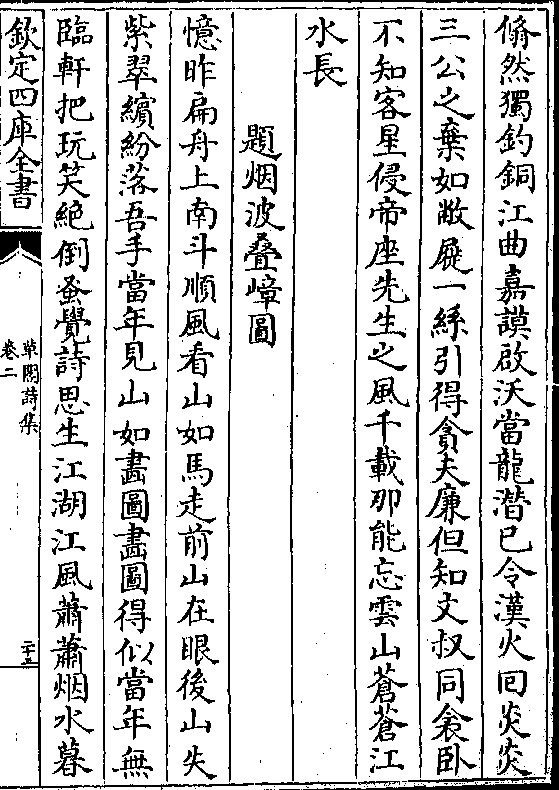 翛然獨釣銅江曲嘉謨啟沃當龍潛已令漢火回炎炎
三公之棄如敝屣一絲引得貪夫廉但知文叔同衾卧
不知客星侵帝座先生之風千載那能忘雲山蒼蒼江
水長
題烟波叠嶂圖
憶昨扁舟上南斗順風看山如馬走前山在眼後山失
紫翠繽紛落吾手當年見山如畫圖畫圖得似當年無
臨軒把玩笑絶倒蚤覺詩思生江湖江風蕭蕭烟水暮
欽定四庫全書
草閣詩集
卷二
二十五